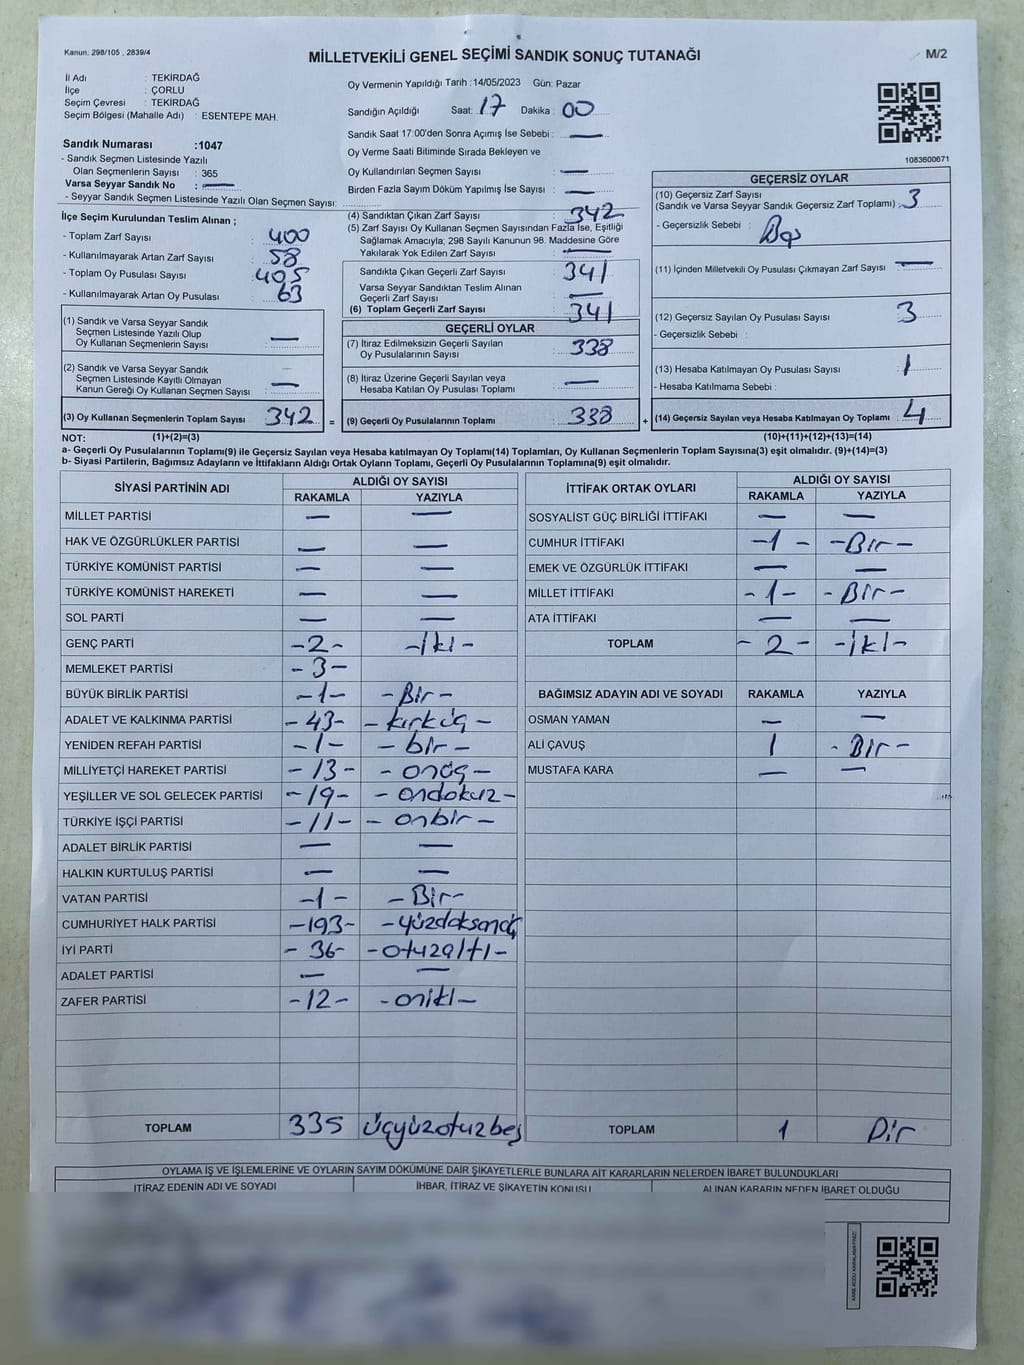 Kanun: 298/105 , 2839/4
MİLLETVEKİLİ GENEL SEÇİMİ SANDIK SONUÇ TUTANAĞI
M/2
İl Adı : TEKİRDAĞ
İlçe : ÇORLU
Seçim Çevresi : TEKİRDAĞ
Seçim Bölgesi (Mahalle Adı) : ESENTEPE MAH.
Sandık Numarası :1047
- Sandık Seçmen Listesinde Yazılı
Olan Seçmenlerin Sayısı : 365
Varsa Seyyar Sandık No : —
- Seyyar Sandık Seçmen Listesinde Yazılı Olan Seçmen Sayısı:
Oy Vermenin Yapıldığı Tarih : 14/05/2023 Gün: Pazar
Sandığın Açıldığı Saat: 17 Dakika : 00
Sandık Saat 17:00'den Sonra Açımış İse Sebebi : —
Oy Verme Saati Bitiminde Sırada Bekleyen ve
Oy Kullandırılan Seçmen Sayısı : —
Birden Fazla Sayım Döküm Yapılmış İse Sayısı : —
1083600671
İlçe Seçim Kurulundan Teslim Alınan ;
- Toplam Zarf Sayısı : 400
- Kullanılmayarak Artan Zarf Sayısı : 58
- Toplam Oy Pusulası Sayısı : 405
- Kullanılmayarak Artan Oy Pusulası : 63
(1) Sandık ve Varsa Seyyar Sandık
Seçmen Listesinde Yazılı Olup
Oy Kullanan Seçmenlerin Sayısı —
(2) Sandık ve Varsa Seyyar Sandık
Seçmen Listesinde Kayıtlı Olmayan
Kanun Gereği Oy Kullanan Seçmen Sayısı —
(3) Oy Kullanan Seçmenlerin Toplam Sayısı 342 =
(4) Sandıktan Çıkan Zarf Sayısı : 342
(5) Zarf Sayısı Oy Kullanan Seçmen Sayısından Fazla İse, Eşitliği
Sağlamak Amacıyla; 298 Sayılı Kanunun 98. Maddesine Göre
Yakılarak Yok Edilen Zarf Sayısı : —
Sandıkta Çıkan Geçerli Zarf Sayısı : 341
Varsa Seyyar Sandıktan Teslim Alınan
Geçerli Zarf Sayısı : —
(6) Toplam Geçerli Zarf Sayısı : 341
GEÇERLİ OYLAR
(7) İtiraz Edilmeksizin Geçerli Sayılan
Oy Pusulalarının Sayısı : 338
(8) İtiraz Üzerine Geçerli Sayılan veya
Hesaba Katılan Oy Pusulası Toplamı : —
(9) Geçerli Oy Pusulalarının Toplamı : 338 +
GEÇERSİZ OYLAR
(10) Geçersiz Zarf Sayısı
(Sandık ve Varsa Seyyar Sandık Geçersiz Zarf Toplamı) : 3
- Geçersizlik Sebebi : Boş
(11) İçinden Milletvekili Oy Pusulası Çıkmayan Zarf Sayısı : —
(12) Geçersiz Sayılan Oy Pusulası Sayısı : 3
- Geçersizlik Sebebi :
(13) Hesaba Katılmayan Oy Pusulası Sayısı : 1
- Hesaba Katılmama Sebebi :
(14) Geçersiz Sayılan veya Hesaba Katılmayan Oy Toplamı : 4
NOT: (1)+(2)=(3) (10)+(11)+(12)+(13)=(14)
a- Geçerli Oy Pusulalarının Toplamı(9) ile Geçersiz Sayılan veya Hesaba katılmayan Oy Toplamı(14) Toplamları, Oy Kullanan Seçmenlerin Toplam Sayısına(3) eşit olmalıdır. (9)+(14)=(3)
b- Siyasi Partilerin, Bağımsız Adayların ve İttifakların Aldığı Ortak Oyların Toplamı, Geçerli Oy Pusulalarının Toplamına(9) eşit olmalıdır.
SİYASİ PARTİNİN ADI ALDIĞI OY SAYISI
RAKAMLA YAZIYLA
MİLLET PARTİSİ — —
HAK VE ÖZGÜRLÜKLER PARTİSİ — —
TÜRKİYE KOMÜNİST PARTİSİ — —
TÜRKİYE KOMÜNİST HAREKETİ — —
SOL PARTİ — —
GENÇ PARTİ -2- -iki-
MEMLEKET PARTİSİ -3-
BÜYÜK BİRLİK PARTİSİ -1- -Bir-
ADALET VE KALKINMA PARTİSİ -43- -kırküç-
YENİDEN REFAH PARTİSİ -1- -bir-
MİLLİYETÇİ HAREKET PARTİSİ -13- -onüç-
YEŞİLLER VE SOL GELECEK PARTİSİ -19- -ondokuz-
TÜRKİYE İŞÇİ PARTİSİ -11- -onbir-
ADALET BİRLİK PARTİSİ — —
HALKIN KURTULUŞ PARTİSİ — —
VATAN PARTİSİ -1- -Bir-
CUMHURİYET HALK PARTİSİ -193- -yüzdoksanüç
İYİ PARTİ -36- -otuzaltı-
ADALET PARTİSİ — —
ZAFER PARTİSİ -12- -oniki-
TOPLAM 335 üçyüzotuzbeş
İTTİFAK ORTAK OYLARI ALDIĞI OY SAYISI
RAKAMLA YAZIYLA
SOSYALİST GÜÇ BİRLİĞİ İTTİFAKI — —
CUMHUR İTTİFAKI -1- -Bir-
EMEK VE ÖZGÜRLÜK İTTİFAKI — —
MİLLET İTTİFAKI -1- -Bir-
ATA İTTİFAKI — —
TOPLAM -2- -iki-
BAĞIMSIZ ADAYIN ADI VE SOYADI RAKAMLA YAZIYLA
OSMAN YAMAN — —
ALİ ÇAVUŞ 1 -Bir-
MUSTAFA KARA — —
TOPLAM 1 Bir
OYLAMA İŞ VE İŞLEMLERİNE VE OYLARIN SAYIM DÖKÜMÜNE DAİR ŞİKAYETLERLE BUNLARA AİT KARARLARIN NELERDEN İBARET BULUNDUKLARI
İTİRAZ EDENİN ADI VE SOYADI İHBAR, İTİRAZ VE ŞİKAYETİN KONUSU ALINAN KARARIN NEDEN İBARET OLDUĞU